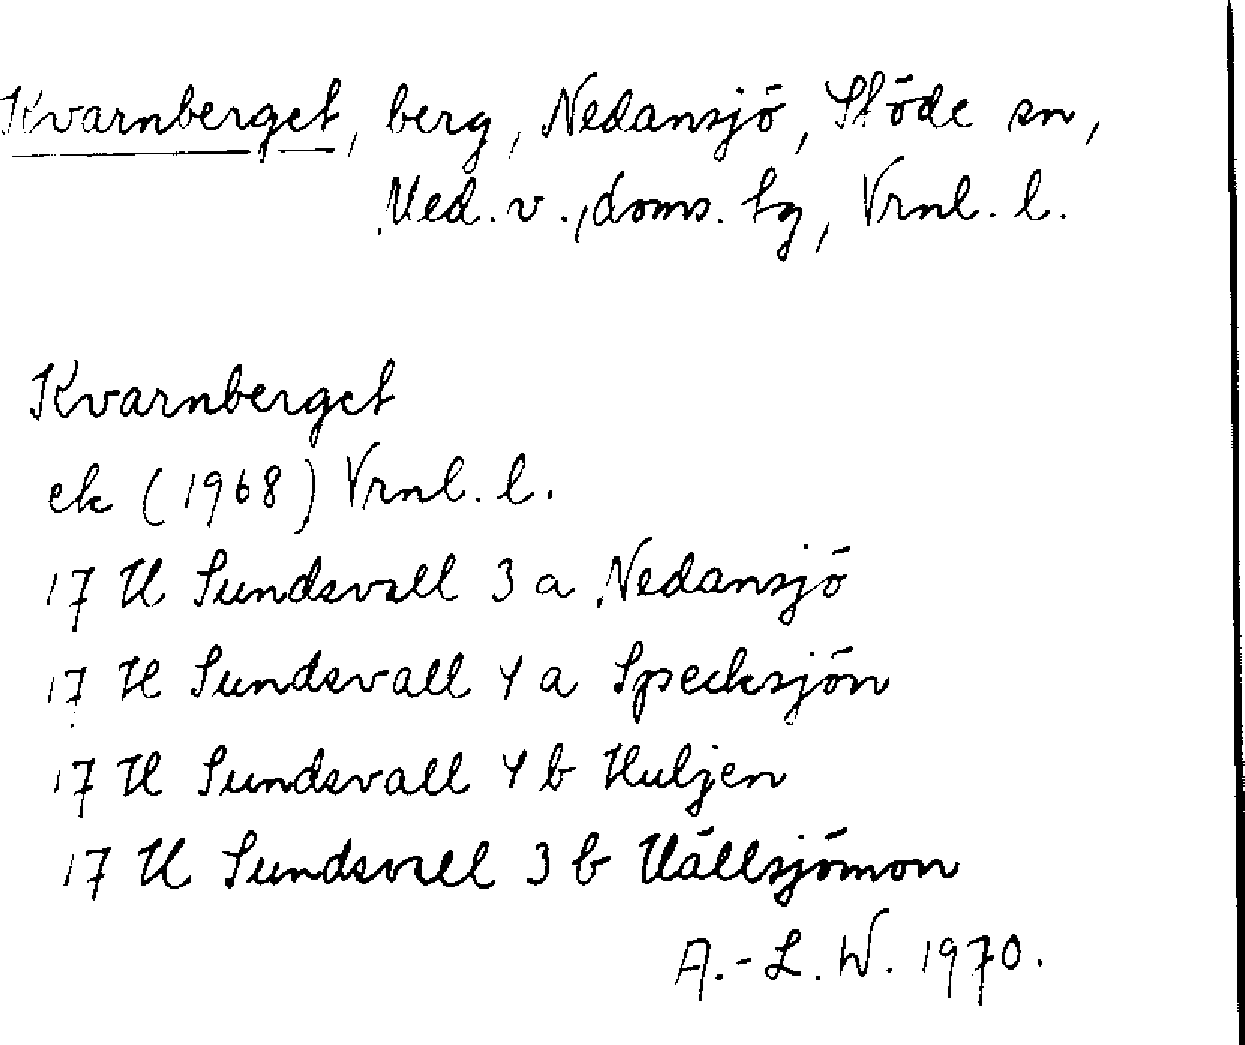 Kvarnberget, berg, Nedansjö, Stöde sn,
Med. v., doms. hg, Vrnl. l.
Kvarnberget
ek (1968) Vrnl. l.
17 H Sundsvall 3 a Nedansjö
17 H Sundsvall 4 a Specksjön
17 H Sundsvall 4 b Huljen
17 H Sundsvall 3 b Hällsjömon
A.-L. W. 1970.